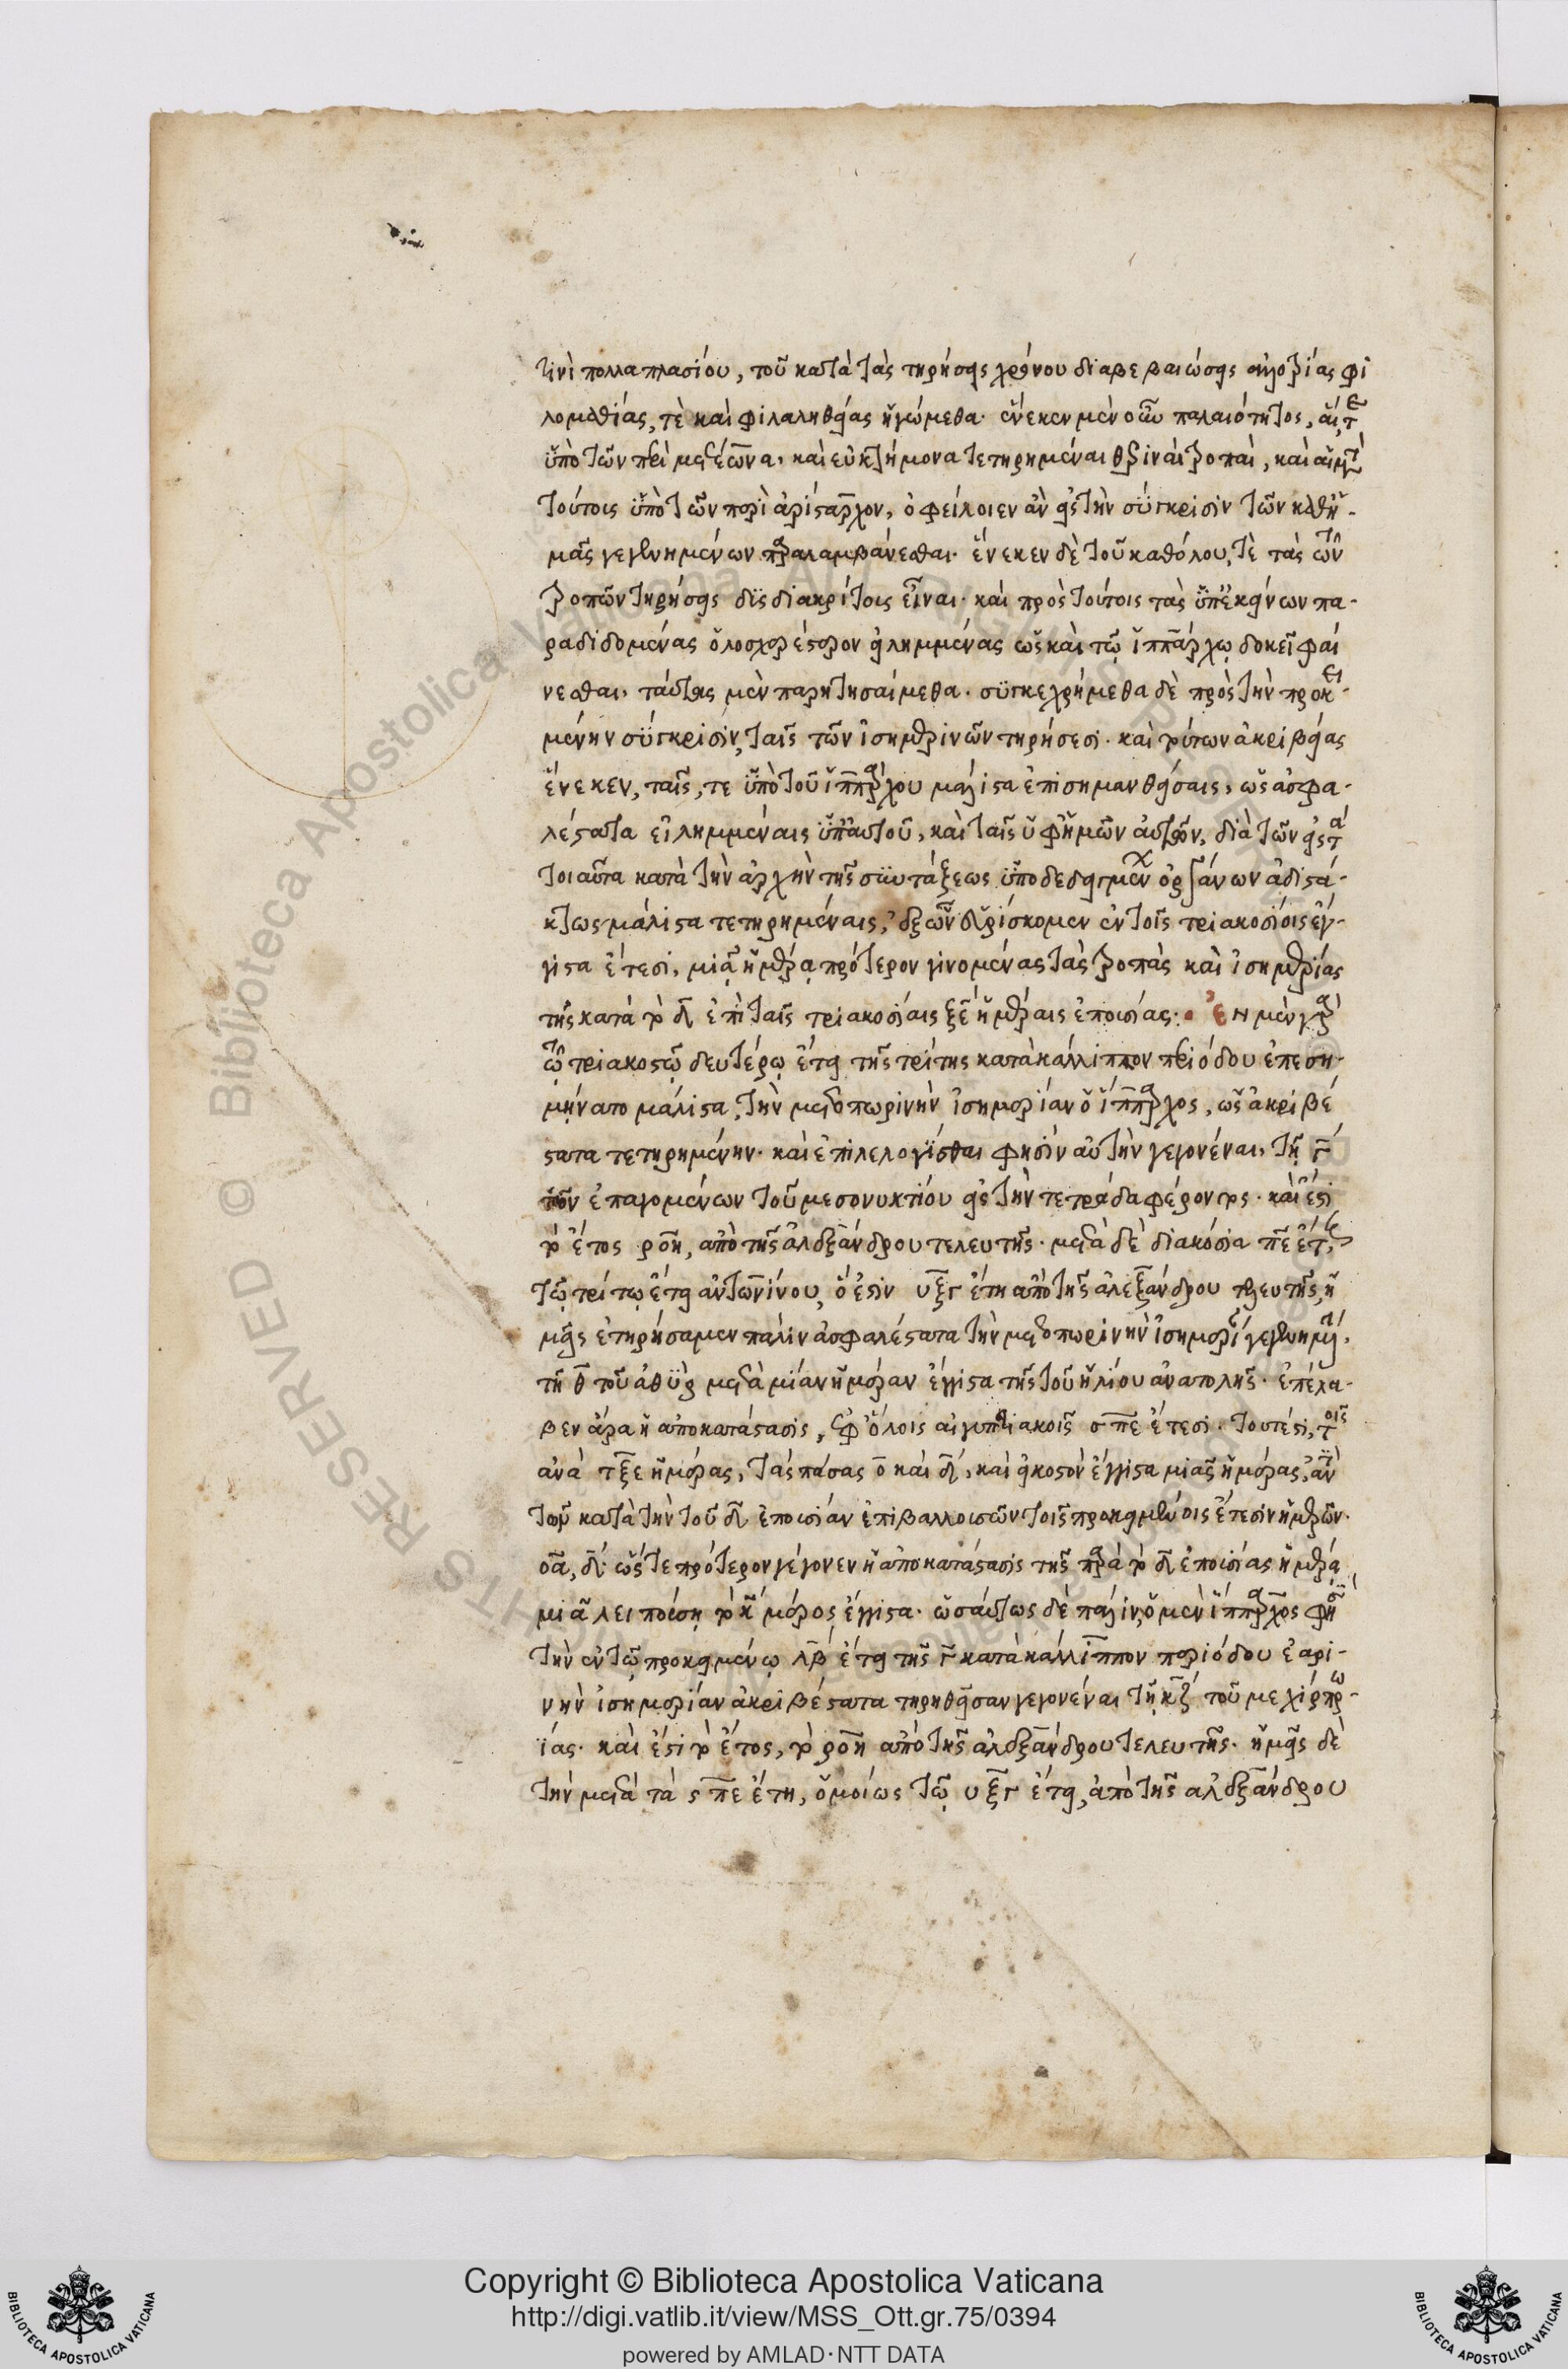 τινὶ πολλαπλασίου, τοῦ κατὰ τὰς τηρήσεις χρόνου διαβεβαιώσεις ἀλλοτρίας φι
λομαθίας, τὲ καὶ φιλαληθείας ἡγώμεθα. ἕνεκεν μὲν οὖν παλαιότητος, αἵ τε
ὑπὸ τῶν περὶ μέτωνα, καὶ εὐκτήμονα τετηρημέναι θεριναὶ τροπαὶ, καὶ αἱ μετὰ
τούτοις ὑπὸ τῶν περὶ ἀρίσταρχον, ὀφείλοιεν ἂν εἰς τὴν σύγκρισιν τῶν καθ' ἡ-
μᾶς γεγενημένων παραλαμβάνεσθαι. ἕνεκεν δὲ τοῦ καθόλου, τὲ τὰς τῶν
τροπῶν τηρήσεις δϊςδιακρίτοις εἶναι. καὶ πρὸς τούτοις τὰς ὑπ' ἐκείνων πα-
ραδιδομένας ὁλοσχερέστερον εἰλημμένας ὡς καὶ τῷ ἱππάρχῳ δοκεῖ φαί
νεσθαι, ταύτας μὲν παρητησαίμεθα. συγκεχρήμεθα δὲ πρὸς τὴν προκει-
μένην σύγκρισιν, ταῖς τῶν ἰσημερινῶν τηρήσεσι. καὶ τούτων ἀκριβείας
ἕνεκεν, ταῖς, τε ὑπὸ τοῦ ἱππάρχου μάλιστα ἐπισημανθείσαις, ὡς ἀσφα-
λέστατα εἰλημμέναις ὑπ' αὐτοῦ, καὶ ταῖς ὑφ' ἡμῶν αὐτῶν, διὰ τῶν εἰς τὰ
τοιαῦτα κατὰ τὴν ἀρχὴν τῆς συντάξεως ὑποδεδειγμένων ὀργάνων ἀδιστά-
κτως μάλιστα τετηρημέναις, ἐξ ὧν εὑρίσκομεν ἐν τοῖς τριακοσίοις ἔγ-
γιστα ἔτεσι, μιᾷ ἡμέρᾳ πρότερον γινομένας τὰς τροπὰς καὶ ἰσημερίας
τῆς κατὰ τὸ δ ἐπὶ ταῖς τριακοσίαις ξε ἡμέραις ἐπουσίας. ἐν μὲν γὰρ
τῷ τριακοστῷ δευτέρῳ ἔτει τῆς τρίτης κατὰ κάλλιππον περιόδου ἐπεση-
μήνατο μάλιστα, τὴν μετοπωρινὴν ἰσημερίαν ὁ ἵππαρχος, ὡς ἀκριβέ
στατα τετηρημένην. καὶ ἐπιλελογίσθαι φησὶν αὐτὴν γεγονέναι, τῇ γ
τῶν ἐπαγομένων τοῦ μεσονυκτίου εἰς τὴν τετράδα φέροντος. καὶ ἔστι
τὸ ἔτος ροη, ἀπὸ τῆς ἀλεξάνδρου τελευτῆς. μετὰ δὲ διακόσια πε ἔτη
τῷ τρίτῳ ἔτει ἀντωνίνου, ὅ ἐστιν υξγ ἔτη ἀπὸ τῆς ἀλεξάνδρου τελευτῆς, ἡ
μεῖς ἐτηρήσαμεν πάλιν ἀσφαλέστατα τὴν μετοπωρινὴν ἰσημερίαν γεγενημένην.
τῇ θ τοῦ ἀθὺρ μετὰ μίαν ἡμέραν ἔγγιστα τῆς τοῦ ἡλίου ἀνατολῆς. ἐπέλα-
βεν ἄρα ἡ ἀποκατάστασις, ἐφ' ὅλοις αἰγυπτιακοῖς σπε ἔτεσι. τουτέστι, τοῖς
ἀνὰ τξε ἡμέρας, τὰς πάσας ο καὶ δ, καὶ εἰκοστὸν ἔγγιστα μιᾶς ἡμέρας, ἀντὶ
τῶν κατὰ τὴν τοῦ δ ἐπουσίαν ἐπιβαλλουσῶν τοῖς προκειμένοις ἔτεσιν ἡμερῶν.
οα, δ. ὥστε πρότερον γέγονεν ἡ ἀποκατάστασις τῆς παρὰ τὸ δ ἐπουσίας ἡμέρᾳ
μιᾷ λειπούσῃ τὸ κ μέρος ἔγγιστα. ὡσαύτως δὲ πάλιν, ὁ μὲν ἵππαρχος φησὶ
τὴν ἐν τῷ προκειμένῳ λβ ἔτει τῆς γ κατὰ κάλλιππον περιόδου ἐαρι-
νὴν ἰσημερίαν ἀκριβέστατα τηρηθεῖσαν γεγονέναι τῇ κζ τοῦ μεχὶρ πρω-
ίας. καὶ ἔστι τὸ ἔτος, τὸ ροη ἀπὸ τῆς ἀλεξάνδρου τελευτῆς. ἡμεῖς δὲ
τὴν μετὰ τὰ σπε ἔτη, ὁμοίως τῷ υξγ ἔτει, ἀπὸ τῆς ἀλεξάνδρου
Copyright © Biblioteca Apostolica Vaticana
http://digi.vatlib.it/view/MSS_Ott.gr.75/0394
powered by AMLAD·NTT DATA